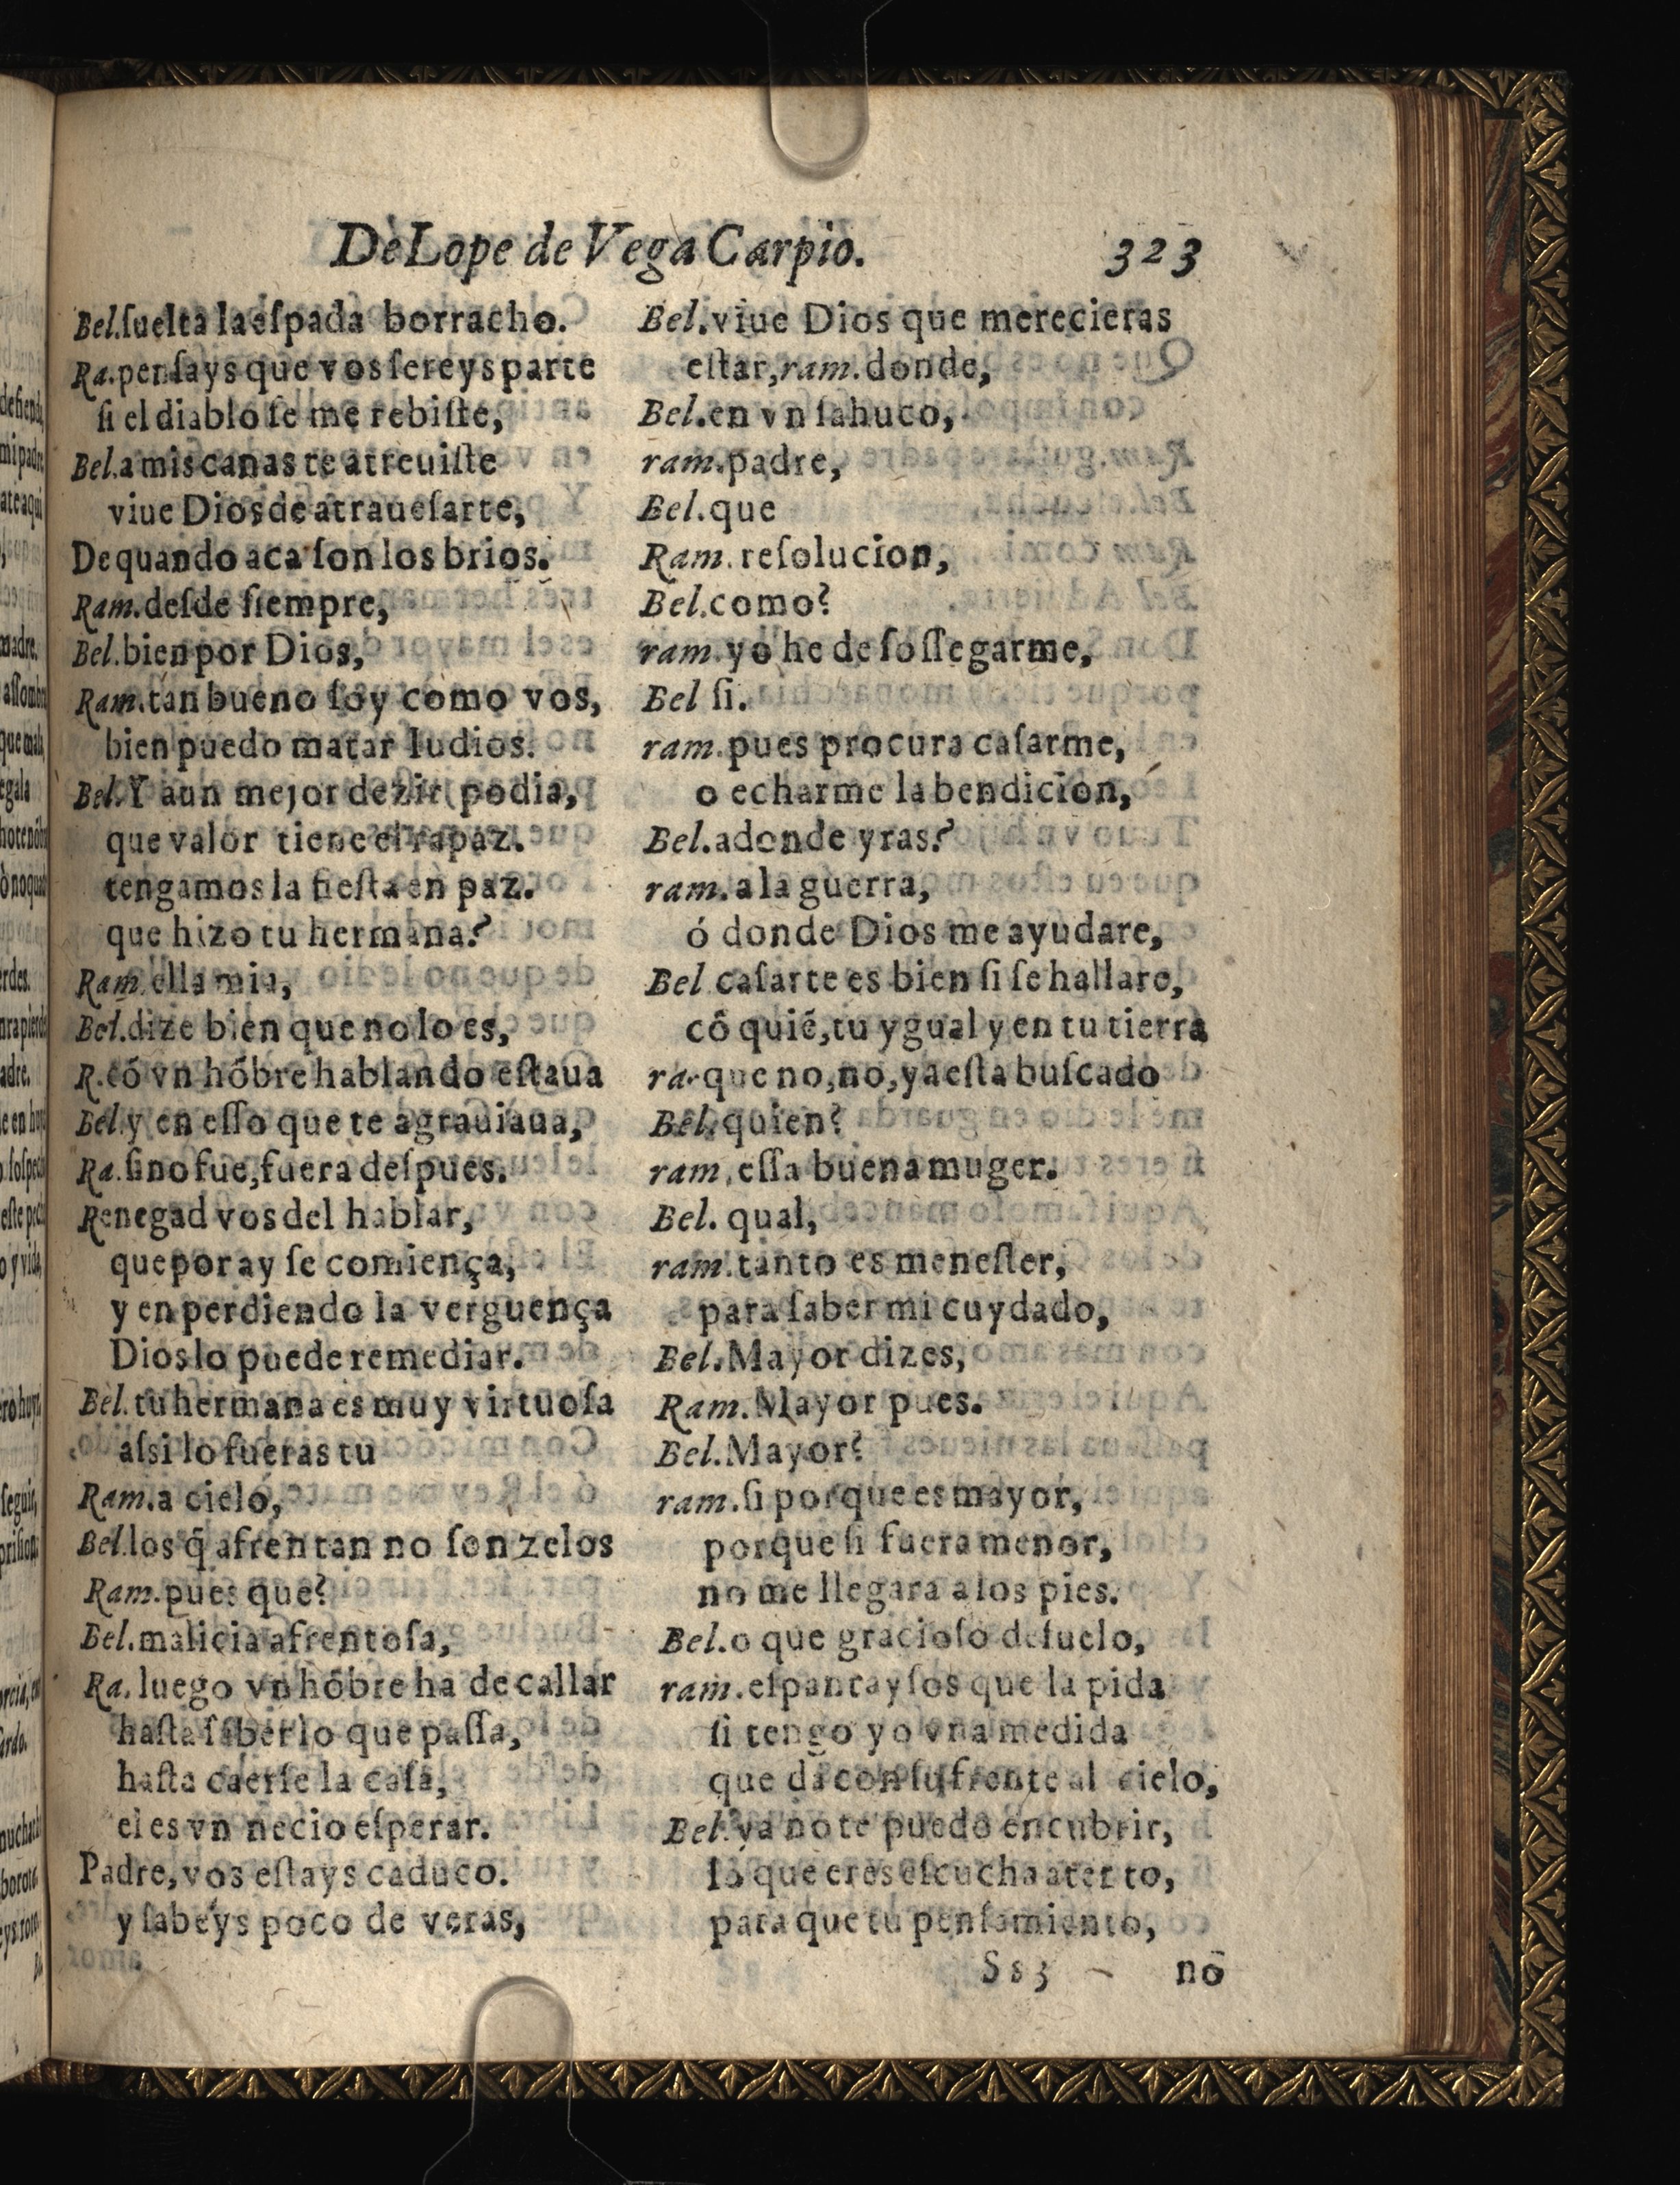 De Lope de Vega Carpio.
323
Bel. ſuelta la eſpada borracho.
Ra. penſays que vos ſereys parte
ſi el diablo ſe me rebiſte,
Bel. a mis canas te atreuiſte
viue Dios de atraueſarte,
De quando aca ſon los brios.
Ram. deſde ſiempre,
Bel. bien por Dios,
Ram. tan bueno ſoy como vos,
bien puedo matar Iudios.
Bel. Y aun mejor dezir podia,
que valor tiene el rapaz.
tengamos la fieſta en paz.
que hizo tu hermana?
Ram. ella mia,
Bel. dize bien que no lo es,
R. cō vn hōbre hablando eſtaua
Bel. y en eſſo que te agrauiaua,
Ra. ſino fue, fuera deſpues.
Renegad vos del hablar,
que por ay ſe comiença,
y en perdiendo la verguença
Dios lo puede remediar.
Bel. tu hermana es muy virtuoſa
aſsi lo fueras tu
Ram. a cielo,
Bel. los q̄ afrentan no ſon zelos
Ram. pues que?
Bel. malicia afrentoſa,
Ra. luego vn hōbre ha de callar
haſta ſaber lo que paſſa,
haſta caerſe la caſa,
el es vn necio eſperar.
Padre, vos eſtays caduco.
y ſabeys poco de veras,
Bel. viue Dios que merecieras
eſtar, ram. donde,
Bel. en vn ſahuco,
ram. padre,
Bel. que
Ram. reſolucion,
Bel. como?
ram. yo he de ſoſſegarme,
Bel ſi.
ram. pues procura caſarme,
o echarme la bendicion,
Bel. adonde yras?
ram. a la guerra,
ó donde Dios me ayudare,
Bel caſarte es bien ſi ſe hallare,
cō quiē, tu ygual y en tu tierra
ra. que no, no, ya eſta buſcado
Bel. quien?
ram. eſſa buena muger.
Bel. qual,
ram. tanto es meneſter,
para ſaber mi cuydado,
Bel. Mayor dizes,
Ram. Mayor pues.
Bel. Mayor?
ram. ſi porque es mayor,
porque ſi fuera menor,
no me llegara a los pies.
Bel. o que gracioſo deſuelo,
ram. eſpantayſos que la pida
ſi tengo yo vna medida
que da con ſu frente al cielo,
Bel. ya no te puedo encubrir,
lo que eres eſcucha atento,
para que tu penſamiento,
Ss3
no